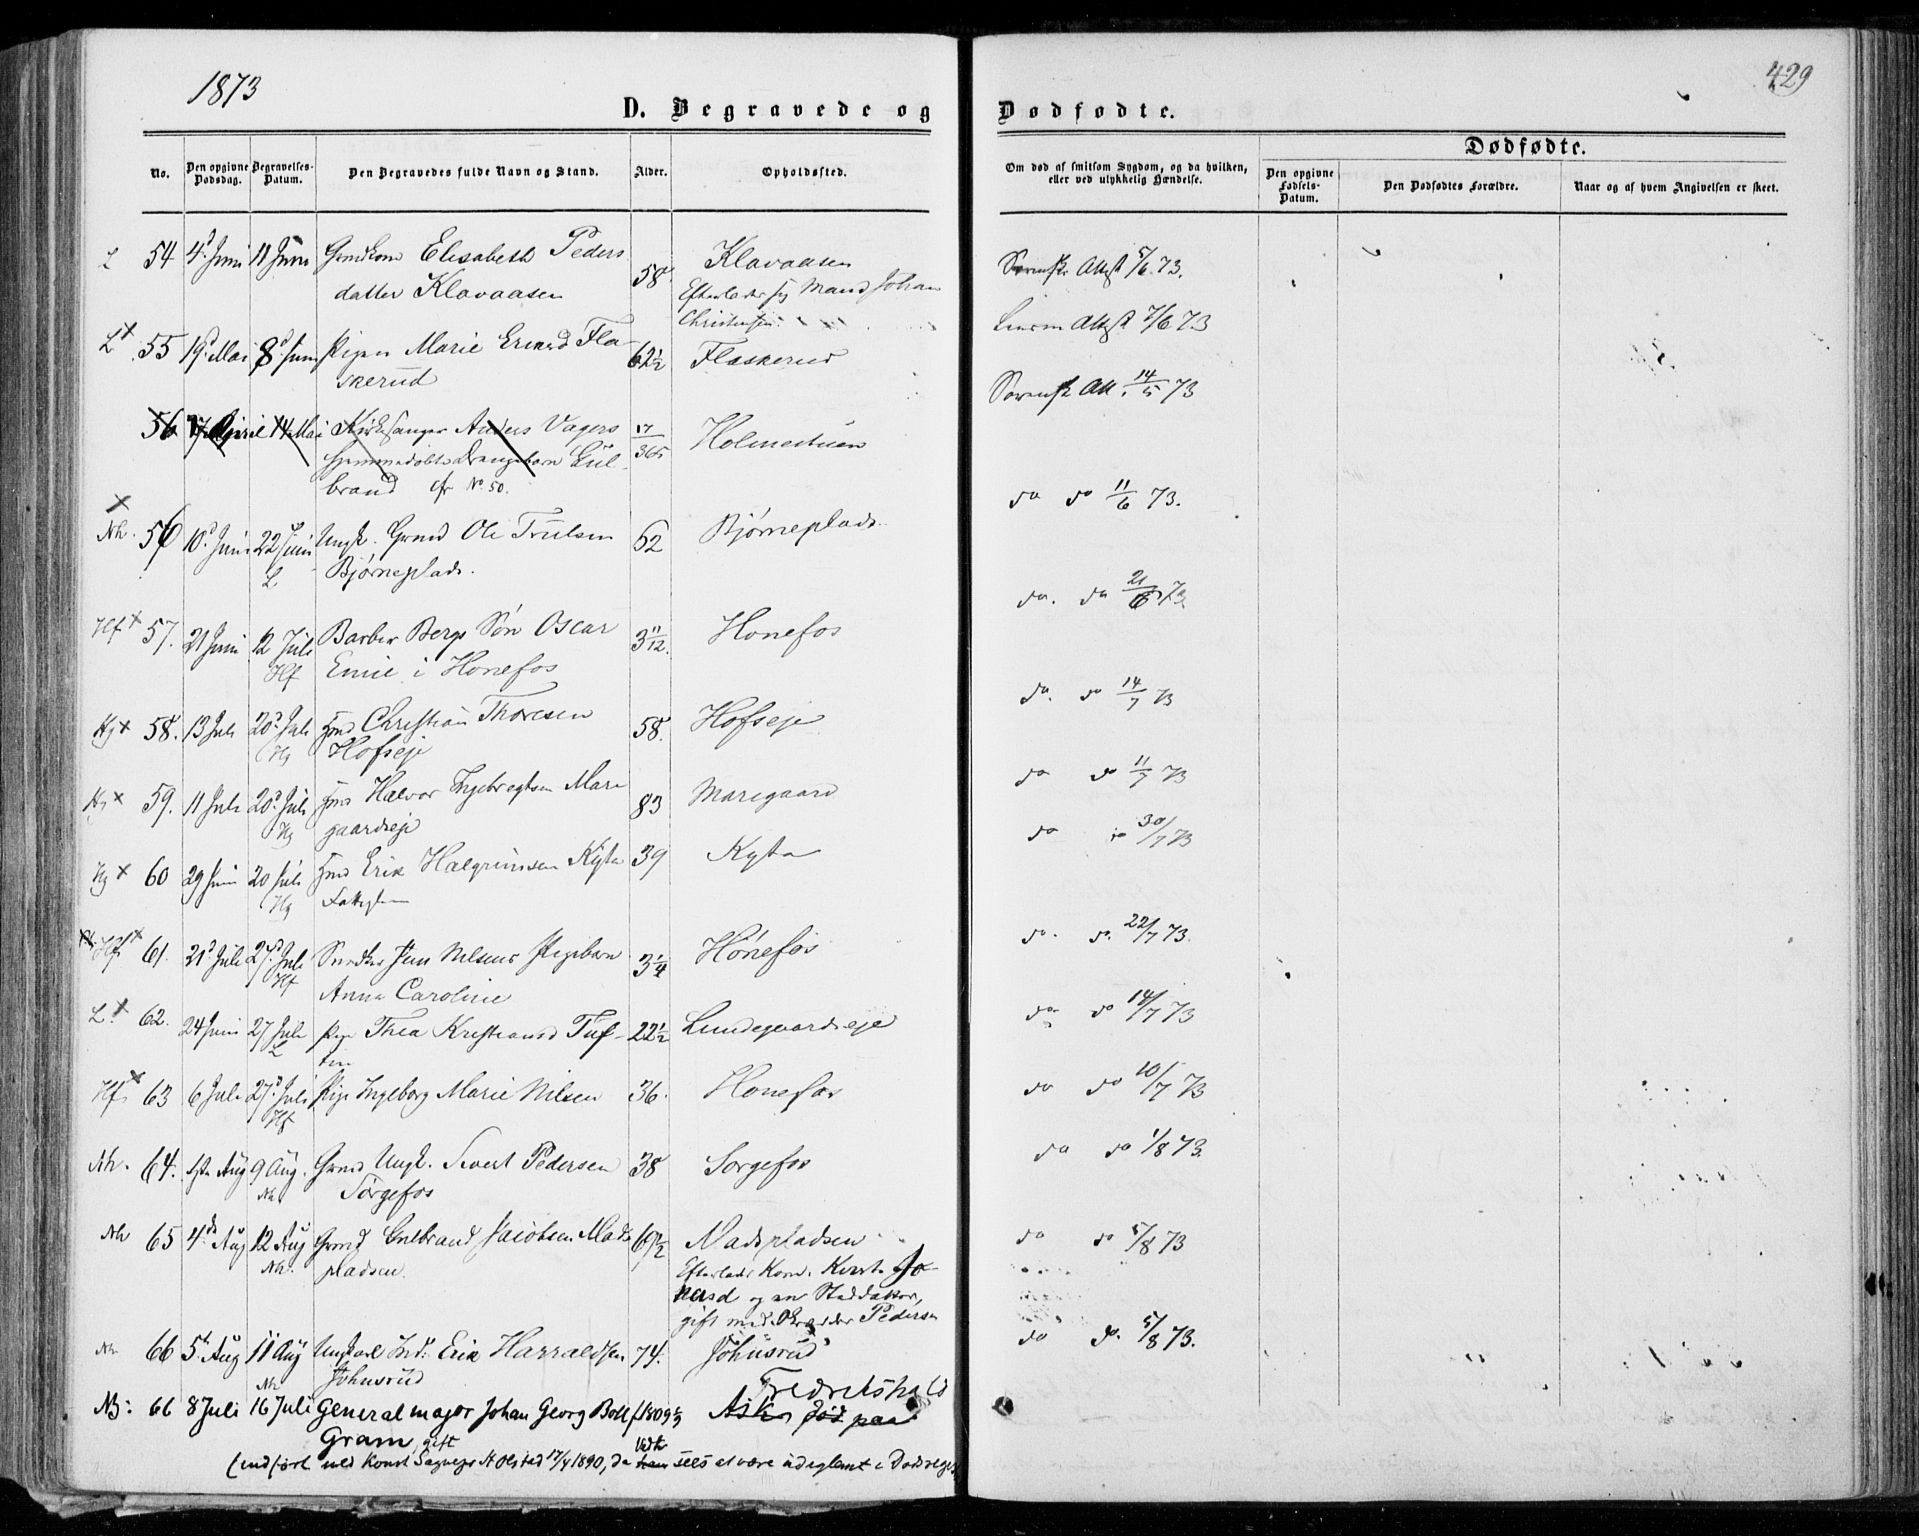 1873
429
D. Begravede og
Dødfødte.
Dødfødte.
No.
Den opgivne Dødsdag.
Begravelses-Datum.
Den Begravedes fulde Navn og Stand.
Alder.
Opholdssted.
Om død af smitsom Sygdom, og da hvilken,
eller ved ulykkelig Hændelse.
Den opgivne Fødsels-Datum.
Den Dødfødtes Forældre.
Naar og af hvem Angivelsen er skeet.
L 54 4d Juni 11 Juni Grmdkone Elisabeth Peders 58 Klavaasen
datter Klavaasen Efterlader sig Mand Johan
Christensen
Attest 5/6 73.
L x 55 19d Mai 8d Juni Pigen Marie Ericsd Fla- 62½ Flaskerud
skerud
Attest 7/6 73
56 April 14 Mai Kirkesanger Anders Vagers 17/365 Holmestuen
hjemmedøbte Drengebarn Gul-
brand cfr No. 50.
Att. 14/5 73
x Nh. 56 10d Juni 22 Juni Ungk. Grmd Ole Trulsen 62 Bjørneplads
L Bjørneplads.
do do 11/6 73.
Hf x 57. 21 Juni 12 Juli Barber Bergs Søn Oscar 3 11/12. Honefos
Hf Emil i Honefos
do. do 21/6 73.
Hg x 58. 13 Juli 20d Juli Christian Thoresen 58. Hofseje
Hg Hofseje
do. do 14/7 73
Hg x 59. 11 Juli 20d Juli Halvor Ingebregtsen Mare 83 Maregaard
Hg gaardseje
do do 11/7 73
Hg x 60 29 Juni 20 Juli Erik Halgrimsen Kyta 39 Kyta
Hg
do do 30/7 73
Hf x 61. 21d Juli 27d Juli Snedker Jens Nilsens Pigebarn 3¼ Hønefos
Hf Anna Caroline
do. do. 22/7 73.
L. x 62. 24 Juni 27 Juli Pige Thea Kristiansd Tuf- 22½ Lundegaardseje
L ten
do do 14/7 73
Hf. x 63 6 Juli 27d Juli Pige Ingeborg Marie Nilsen 36. Honefos
Hf
do do 10/7 73
Nh. 64. 1ste Aug 9 Aug. Grmd Ungk. Sivert Pedersen 38 Sorgefos
Nh Sørgefos
do do 1/8 73.
Nh 65 4de Aug 12 Aug Grmd Gulbrand Jacobsen Mads 69½ Madspladsen
Nh. pladsen. Efterlader Kone Jo-
nasd og en Steddatter,
gift med Pedersen
do do 5/8 73
Nh 66 5t Aug 11 Aug Ungkarl Ind. Erik Harraldsen 74. Johnsrud
Nh Johnsrud
do do. 5/8 73.
NB: 66 8 Juli 16 Juli Generalmajor Johan Georg Boll f 1809 Fredrikshald
Gram, gift Ask
(indført ved Konst Sognepr A Olstad 17/4 1890, da sees at være udeglemt i Dødsreg